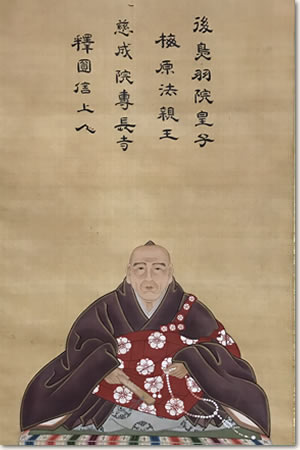 後鳥羽院皇子
梅原法親王
慈成院專長寺
釋圓信上人